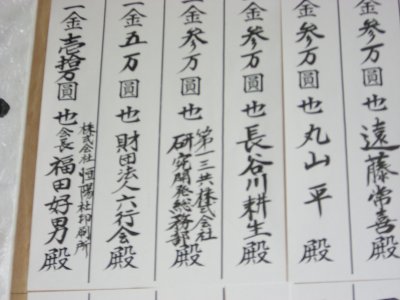 一金参万圓也遠藤常喜殿
一金参万圓也丸山平殿
一金参万圓也長谷川耕生殿
一金参万圓也第一三共株式会社
研究開発総務部殿
一金五万圓也財団法人六行会殿
一金壱拾万圓也株式会社恒陽社印刷所
会長福田好男殿